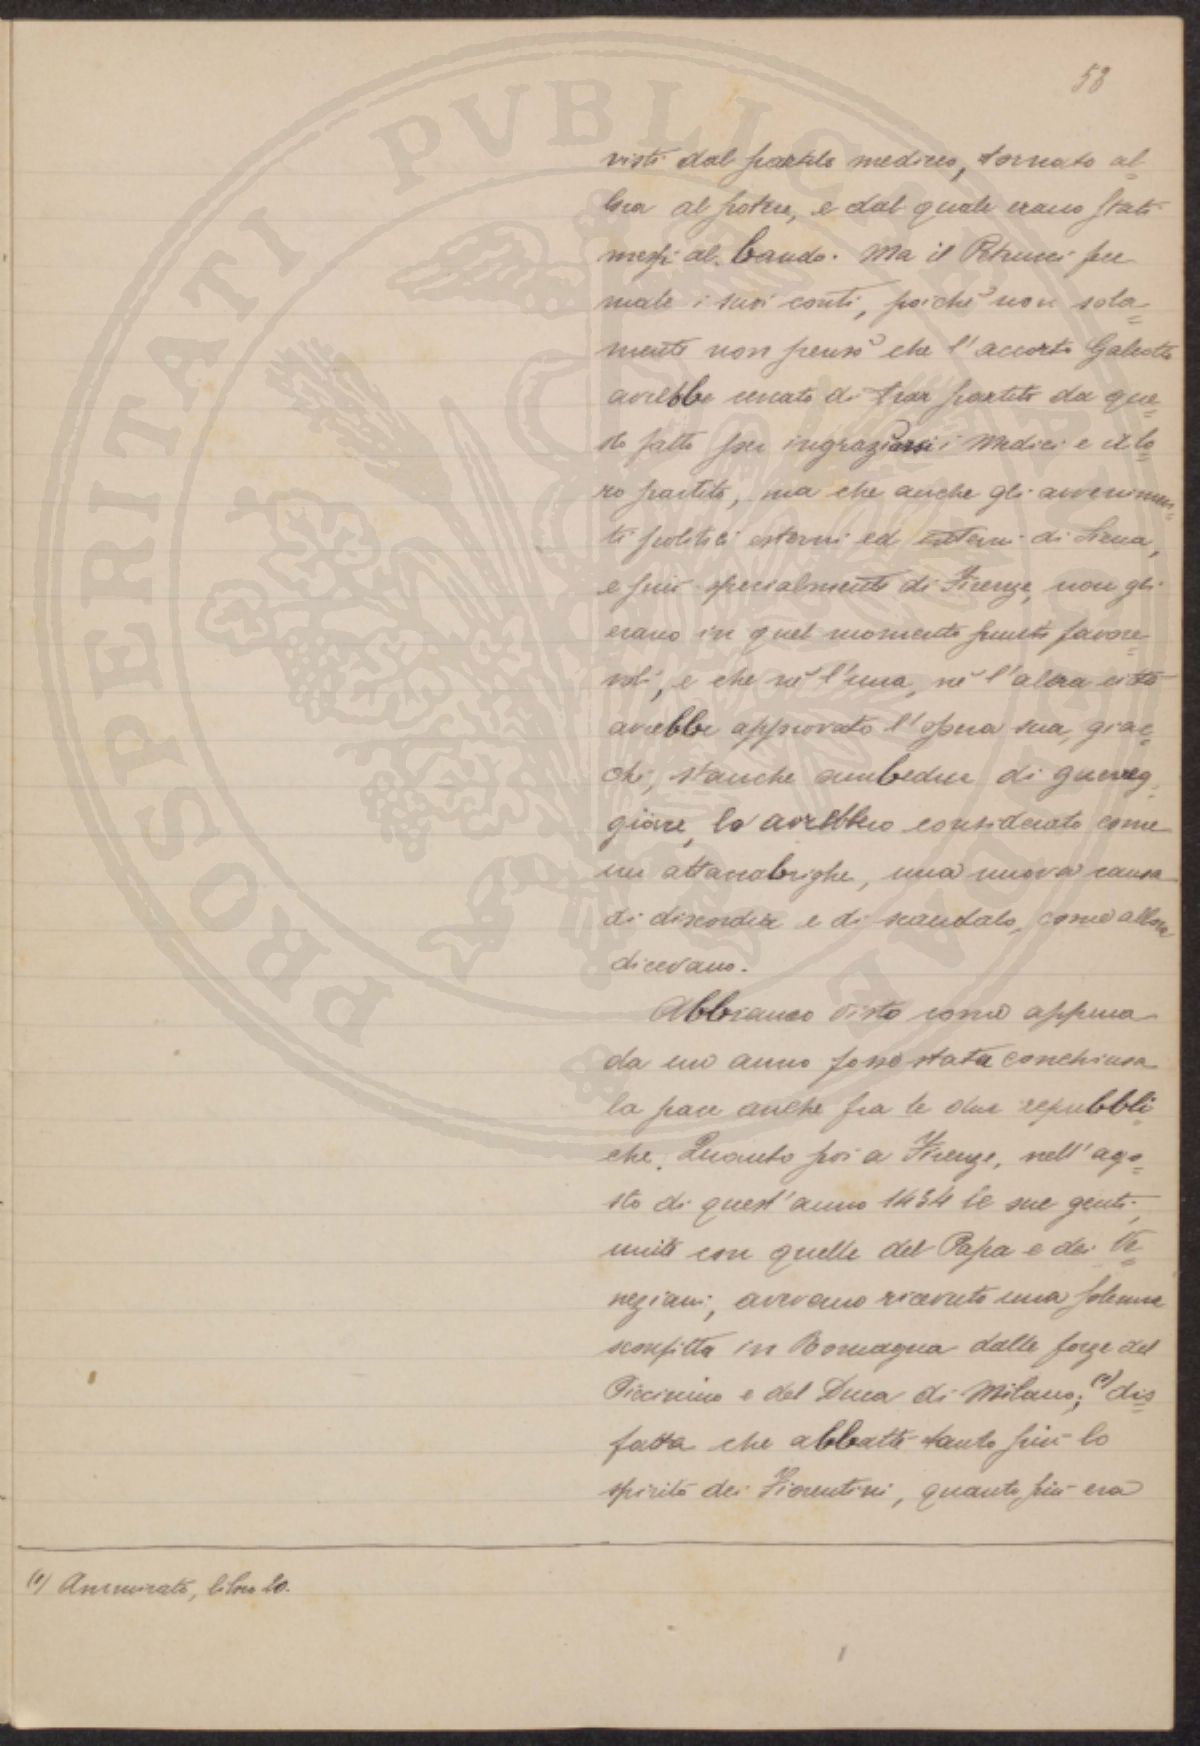 58
visti dal partito mediceo, tornato al=
lora al potere, e dal quale erano stati
messi al bando. Ma il Petrucci fece
male i suoi conti, poichè non sola=
mente non pensò che l'accorto Galeotto
avrebbe cercato di trar partito da que=
sto fatto per ingraziarsi i Medici e il lo=
ro partito, ma che anche gli avvenimen=
ti politici esterni ed interni di Siena,
e più specialmente di Firenze, non gli
erano in quel momento punto favore=
voli, e che nè l'una, nè l'altra città
avrebbe approvato l'opera sua, giac=
chè, stanche ambedue di guereg=
giare, lo avrebbero considerato come
un attaccabrighe, una nuova causa
di discordia e di scandalo, come allora
dicevano.
Abbiamo visto come appena
da un anno fosse stata conchiusa
la pace anche fra le due repubbli=
che. Quanto poi a Firenze, nell'ago=
sto di quest'anno 1434 le sue genti,
unite con quelle del Papa e dei Ve=
neziani, avevano ricevuto una solenne
sconfitta in Romagna dalle forze del
Piccinino e del Duca di Milano; (1) dis=
fatta che abbattè tanto più lo
spirito dei Fiorentini, quanto più era
(1) Ammirato, libro 20.
PROSPERITATI PVBLICAE